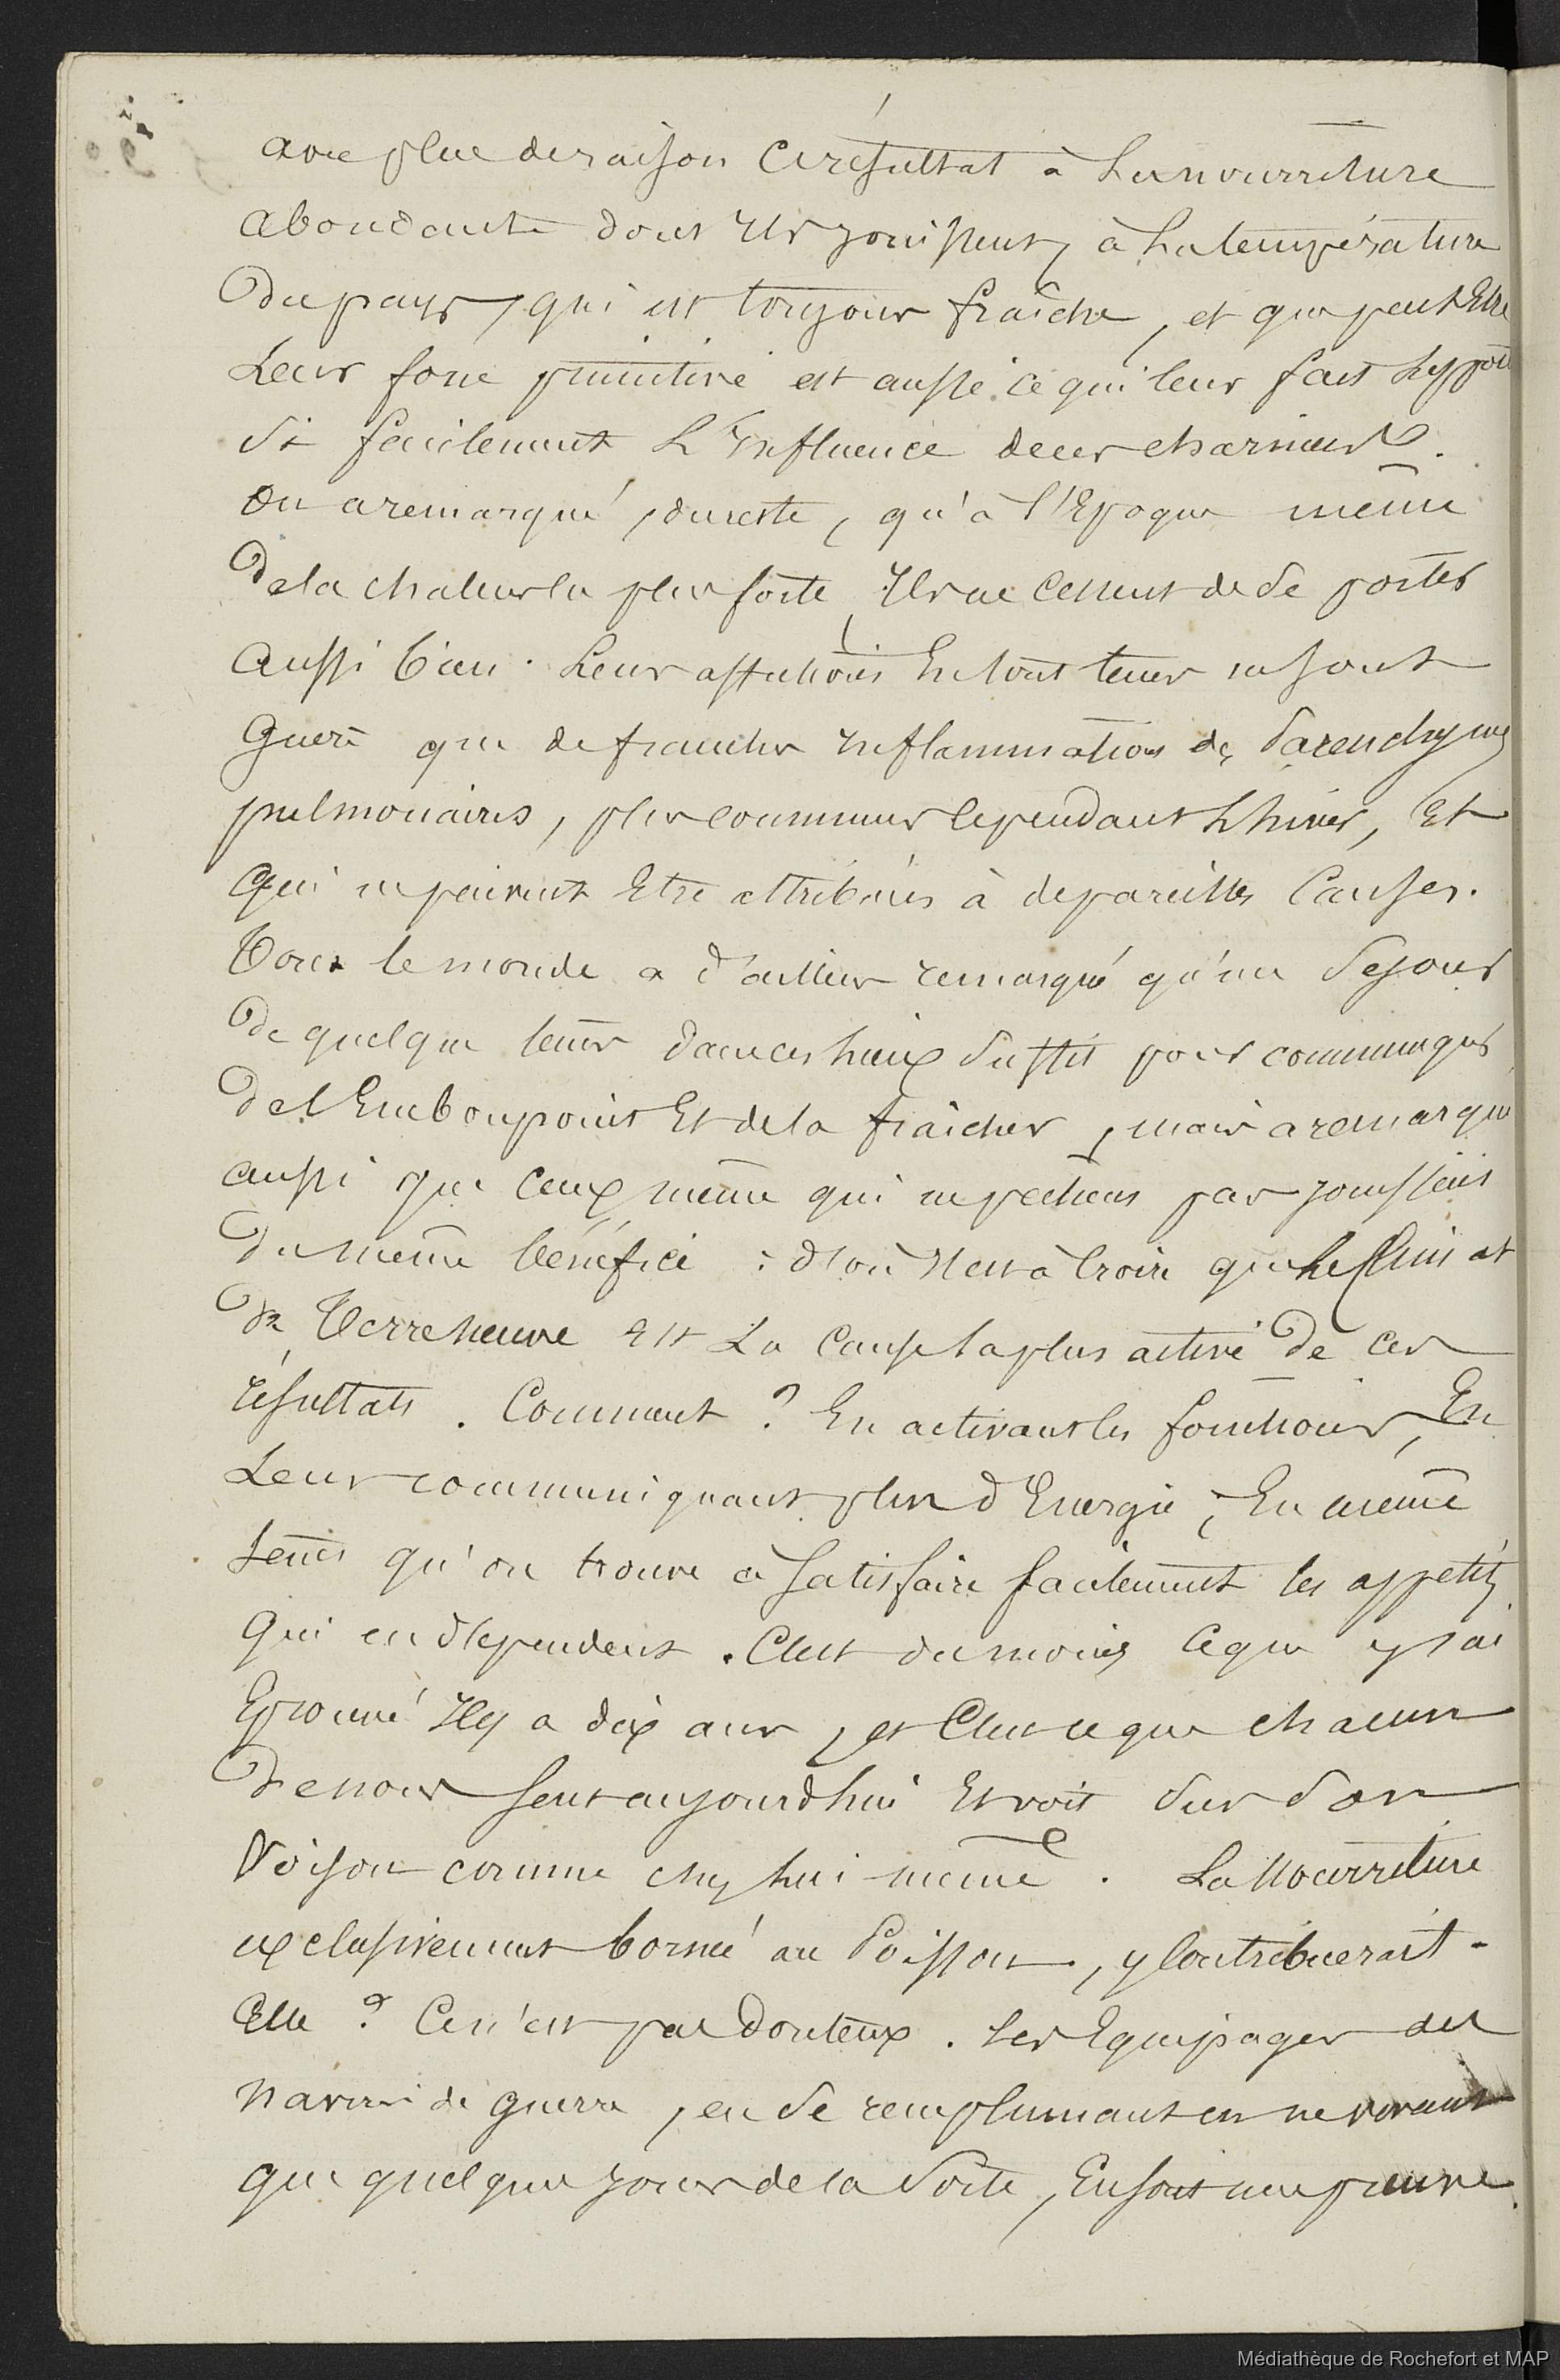 avec plus de raison ce résultat à la nourriture
abondante dont ils jouissent, à la température
du pays, qui est toujours fraîche, et que peut Etre
leur force primitive est aussi ce qui leur fait
si facilement L'influence de ces charniers.
On a remarqué, du reste, qu'à l'Epoque même
de la chaleur la plus forte, Ils ne cessent de se porter
aussi bien. Leurs affections En tout tems ne sont
Guere que de franches inflammations de parenchymes
pulmonaires, plus communes cependant L'hiver, Et
qui ne peuvent Etre attribuées à de pareilles Causes.
Tout le monde a d'ailleurs remarqué qu'un Séjour
de quelque tems dans ces lieux suffit pour communiquer
de l'Embonpoint Et de la fraîcheur, mais a remarqué
aussi que ceux même qui ne pêchent pas jouissent
du même bénéfice : d'où Il est à croire que le Climat
de Terreneuve est La cause la plus active de ces
résultats. Comment ? En activant les fonctions, En
Leur communiquant plus d'Energie, En même
tems qu'on trouve à satisfaire facilement les appetits
Qui en dépendent. C'est du moins ce que j'ai
Eprouvé Il y a dix ans, et C'est ce que chacun
de nous sent aujourd'hui Et voit sur son
Voison comme chez lui même. La Nourriture
exclusivement bornée au Poisson, y contribuerait-
Elle ? Ce n'est pas Douteux. Les Equipages des
navires de guerre, en se remplumant en ne vivant
que quelques jours de la Sorte, En sont une preuve.
Médiathèque de Rochefort et MAP